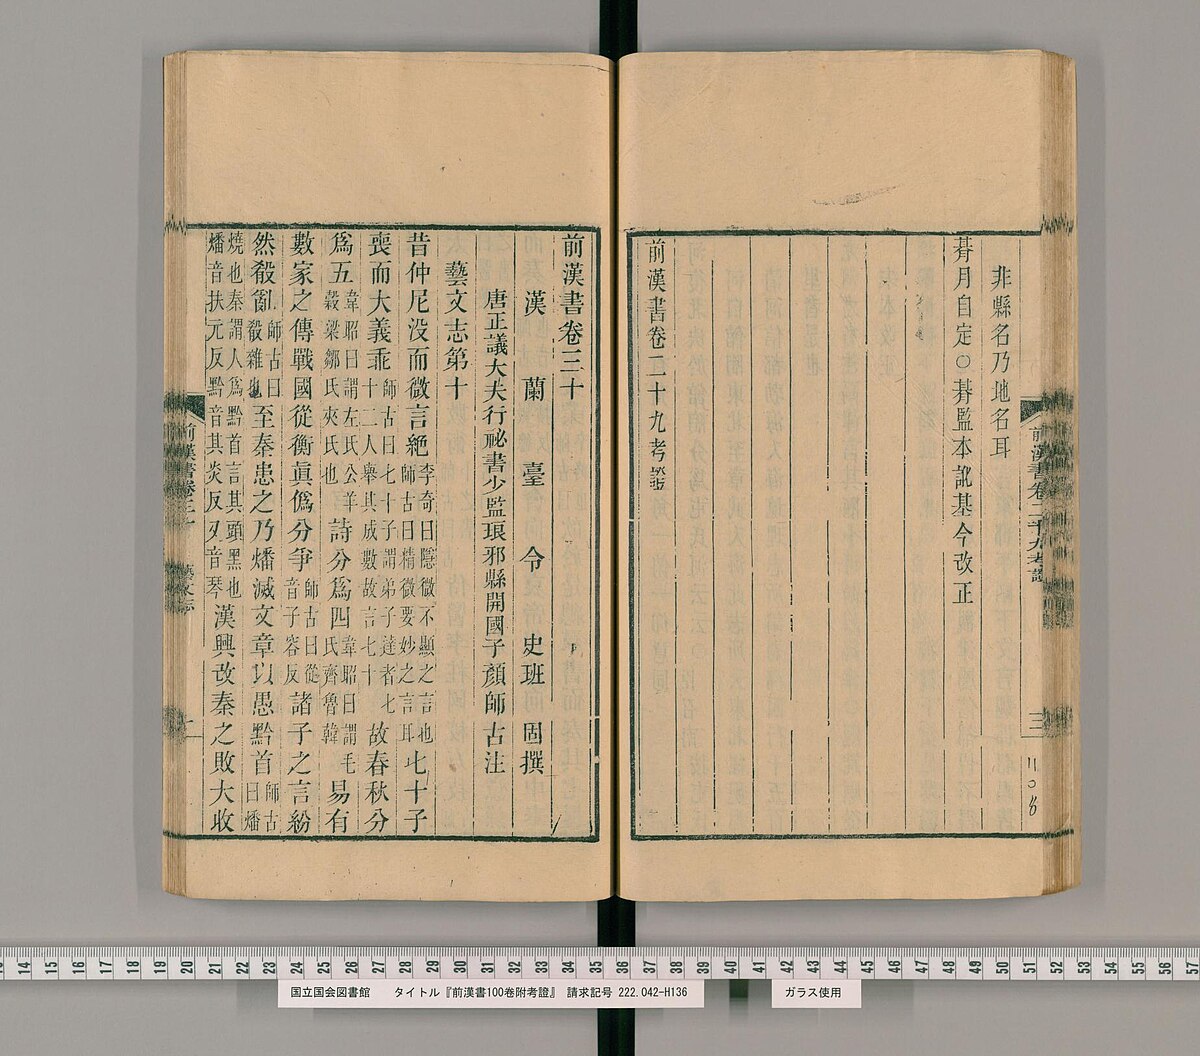 非縣名乃地名耳
朞月自定○朞監本訛基今改正
前漢書卷二十九考證
前漢書卷二十九考證
三
前漢書卷三十
漢蘭臺令史班固撰
唐正議大夫行祕書少監琅邪縣開國子顏師古注
藝文志第十
昔仲尼没而微言絶李奇曰隱微不顯之言也師古曰精微要妙之言耳七十子
喪而大義乖師古曰七十子謂弟子達者七十二人舉其成數故言七十故春秋分
爲五韋昭曰謂左氏公羊穀梁鄒氏夾氏也詩分爲四韋昭曰謂毛氏齊魯韓易有
數家之傳戰國從衡眞僞分爭師古曰從音子容反諸子之言紛
然殽亂師古曰殽雜也至秦患之乃燔滅文章以愚黔首師古曰燔
燒也秦謂人爲黔首言其頭黑也燔音扶元反黔音其炎反又音琴漢興改秦之敗大收
前漢書卷三十
藝文志
一
国立国会図書館 タイトル『前漢書100巻附考證』 請求記号 222.042-H136
ガラス使用
13 14 15 16 17 18 19 20 21 22 23 24 25 26 27 28 29 30 31 32 33 34 35 36 37 38 39 40 41 42 43 44 45 46 47 48 49 50 51 52 53 54 55 56 57